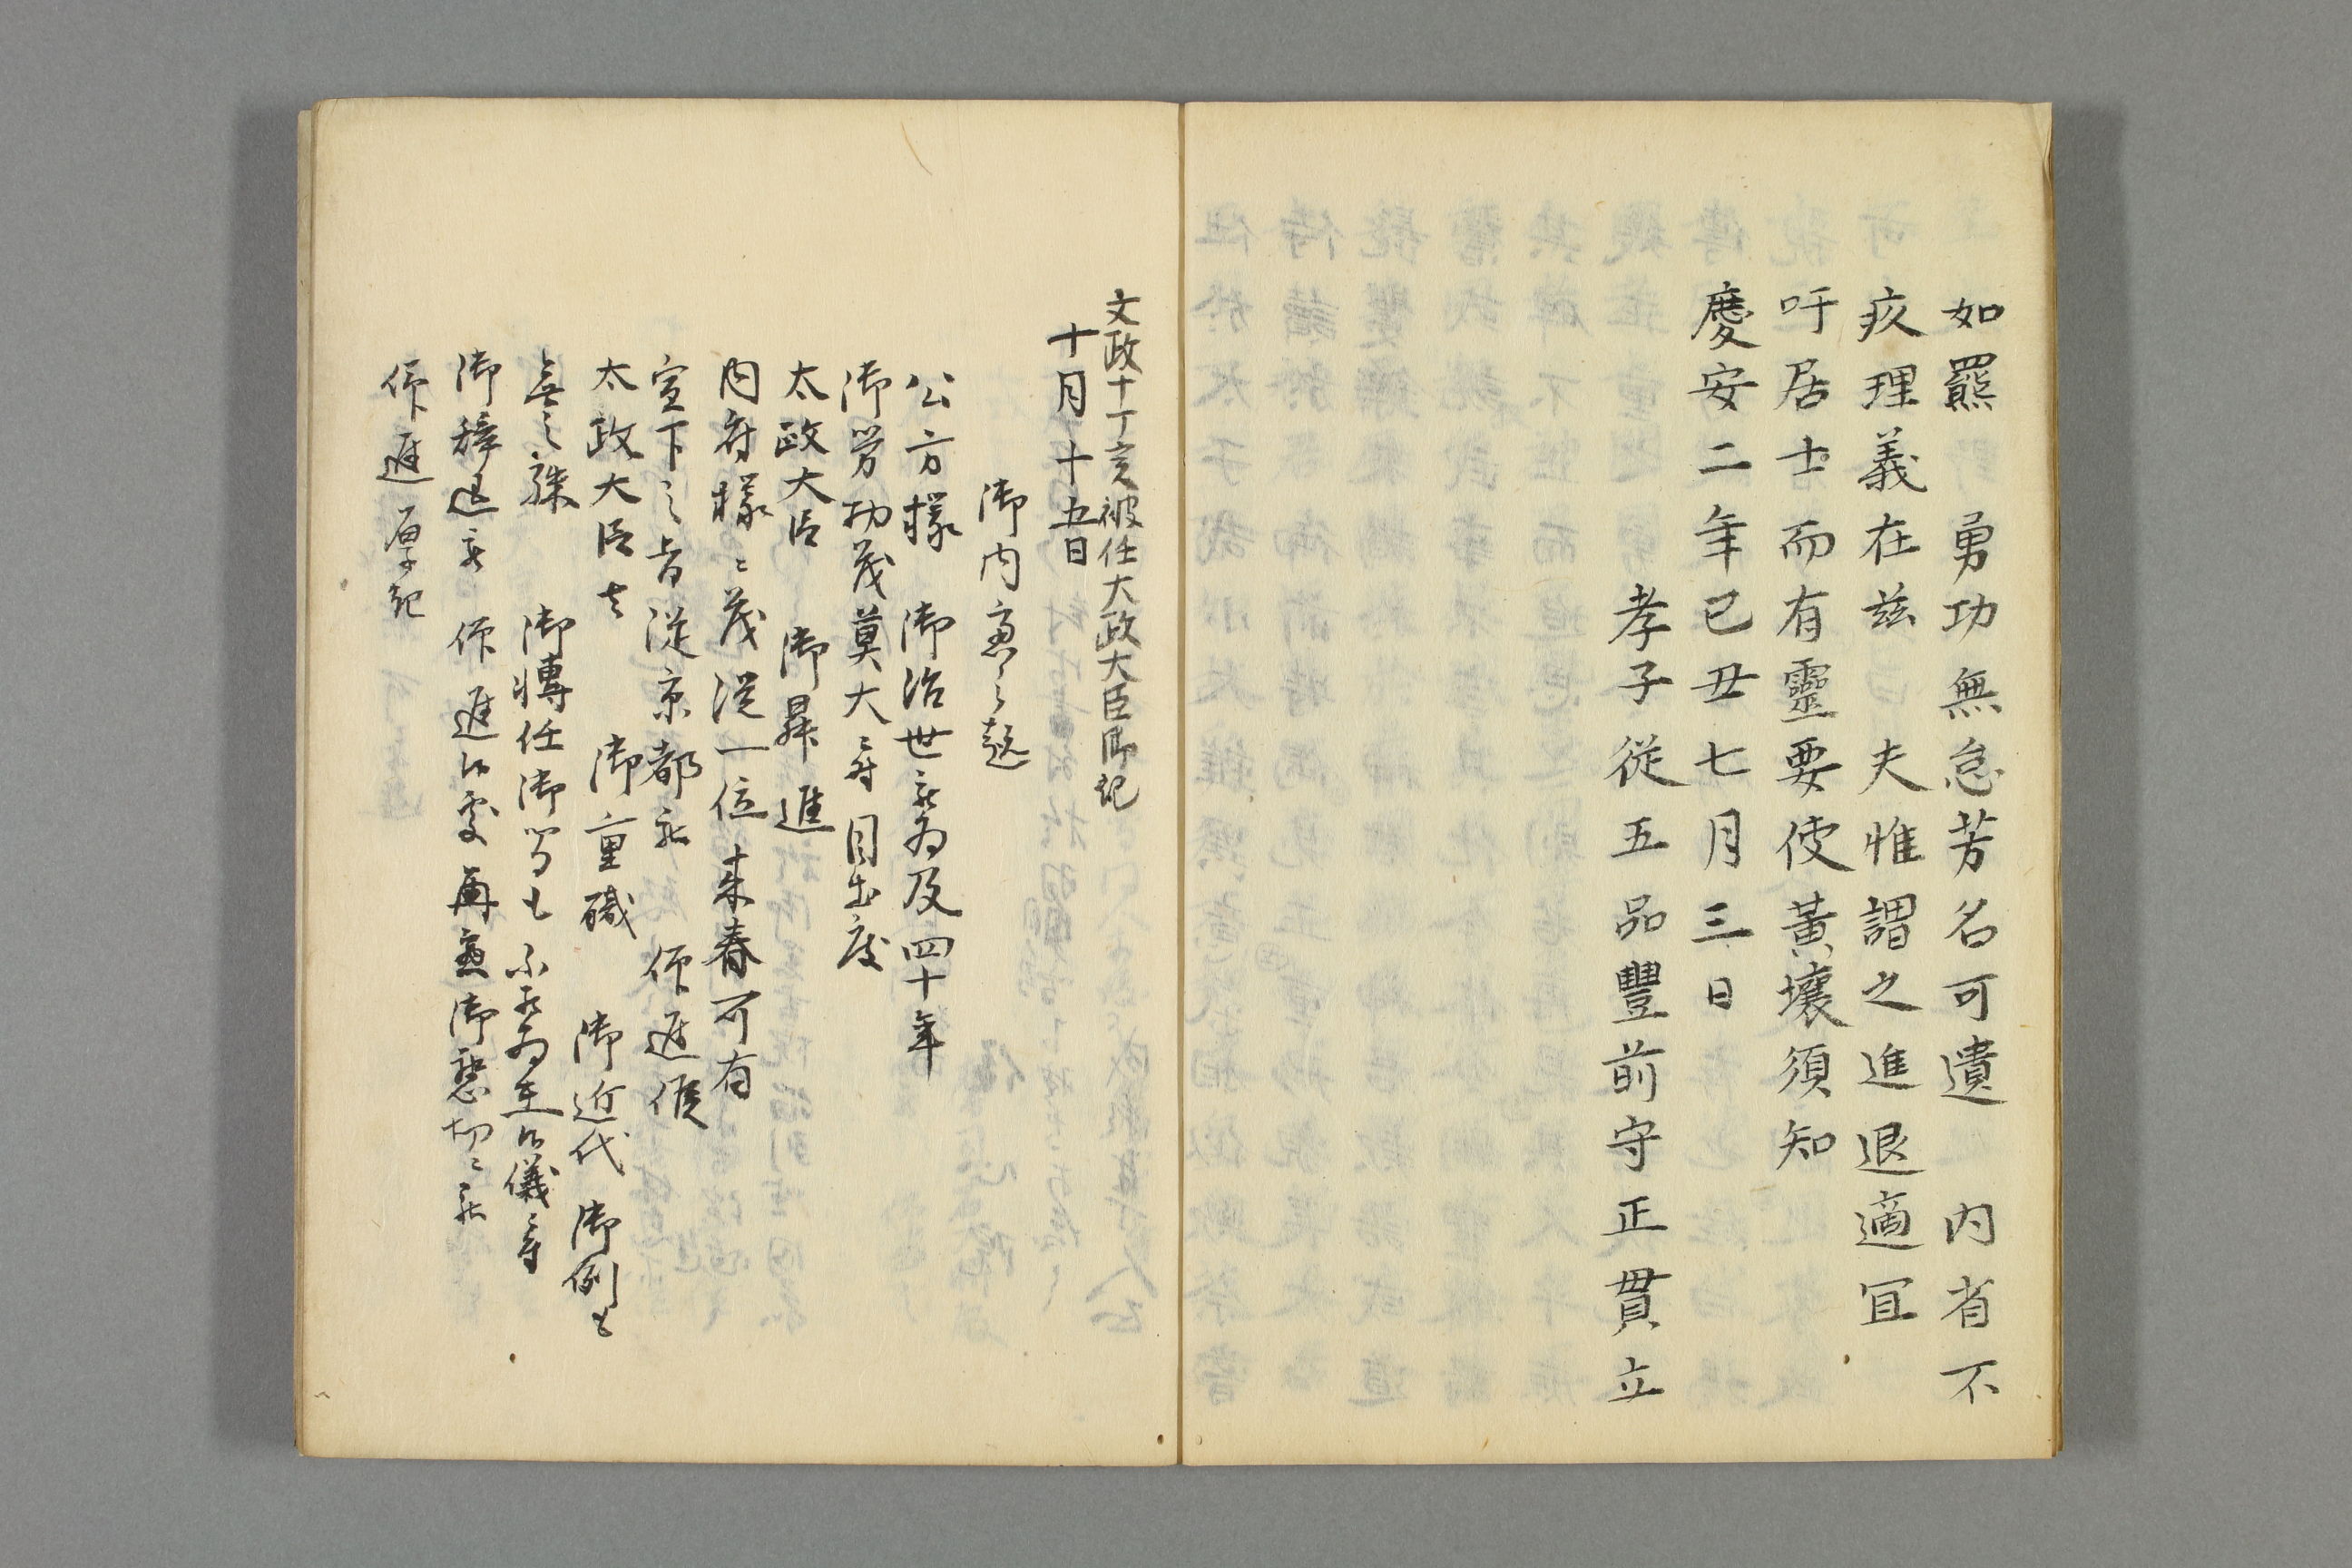 如羆 勇功無怠芳名可遺 内省不
疚理義在茲 夫惟謂之進退適宜
吁居士而有靈要使黃壤須知
慶安二年己丑七月三日
孝子従五品豐前守正貫立
文政十丁亥被任大政大臣御記
十月十五日
御内意之趣
公方様 御治世被為及四十年
御労功茂莫大ニ付目出度
太政大臣 御昇進
内府様ニ茂従一位来春可有
宣下之旨従京都被 仰進候
太政大臣者 御重職 御近代 御例も
無之殊 御轉任御者も不被為在候儀ニ付
御辞退被 仰進候處再應御懇切ニ被
仰進厚